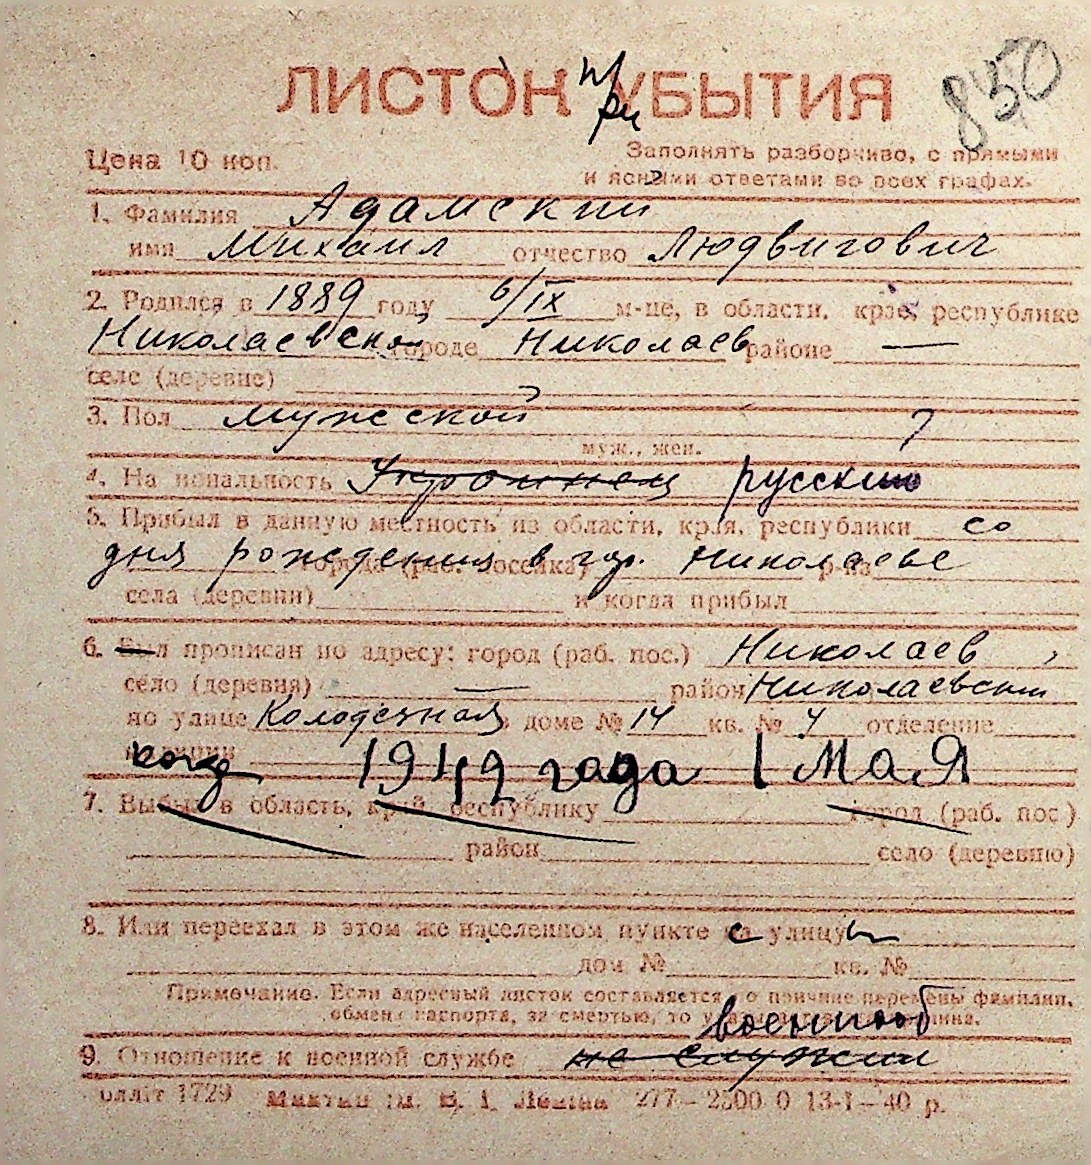 850
ЛИСТОК при УБЫТИЯ
Цена 10 коп.
Заполнять разборчиво, с прямыми
и ясными ответами во всех графах.
1. Фамилия Адамский
имя Михаил отчество Людвигович
2. Родился в 1889 году 6/IX м-це, в области, крае, республике
Николаевской городе Николаев районе —
селе (деревне)
3. Пол мужской
муж., жен.
4. Национальность Украинец русский
5. Прибыл в данную местность из области, края, республики со
дня рождения в гор. Николаеве
села (деревни) и когда прибыл
6. Был прописан по адресу: город (раб. пос.) Николаев
село (деревня) — район Николаевский
по улице Колодезная доме № 14 кв. № 4 отделение
милиции
1942 года 1 мая
7. Выбыл в область, край республику город (раб. пос)
район село (деревню)
8. Или переехал в этом же населенном пункте с улицы
дом № кв. №
Примечание. Если адресный листок составляется по причине перемены фамилии,
обмена паспорта, за смертью, то
военнооб
9. Отношение к военной службе не служил
1729 277–2500 0 13-I–40 р.